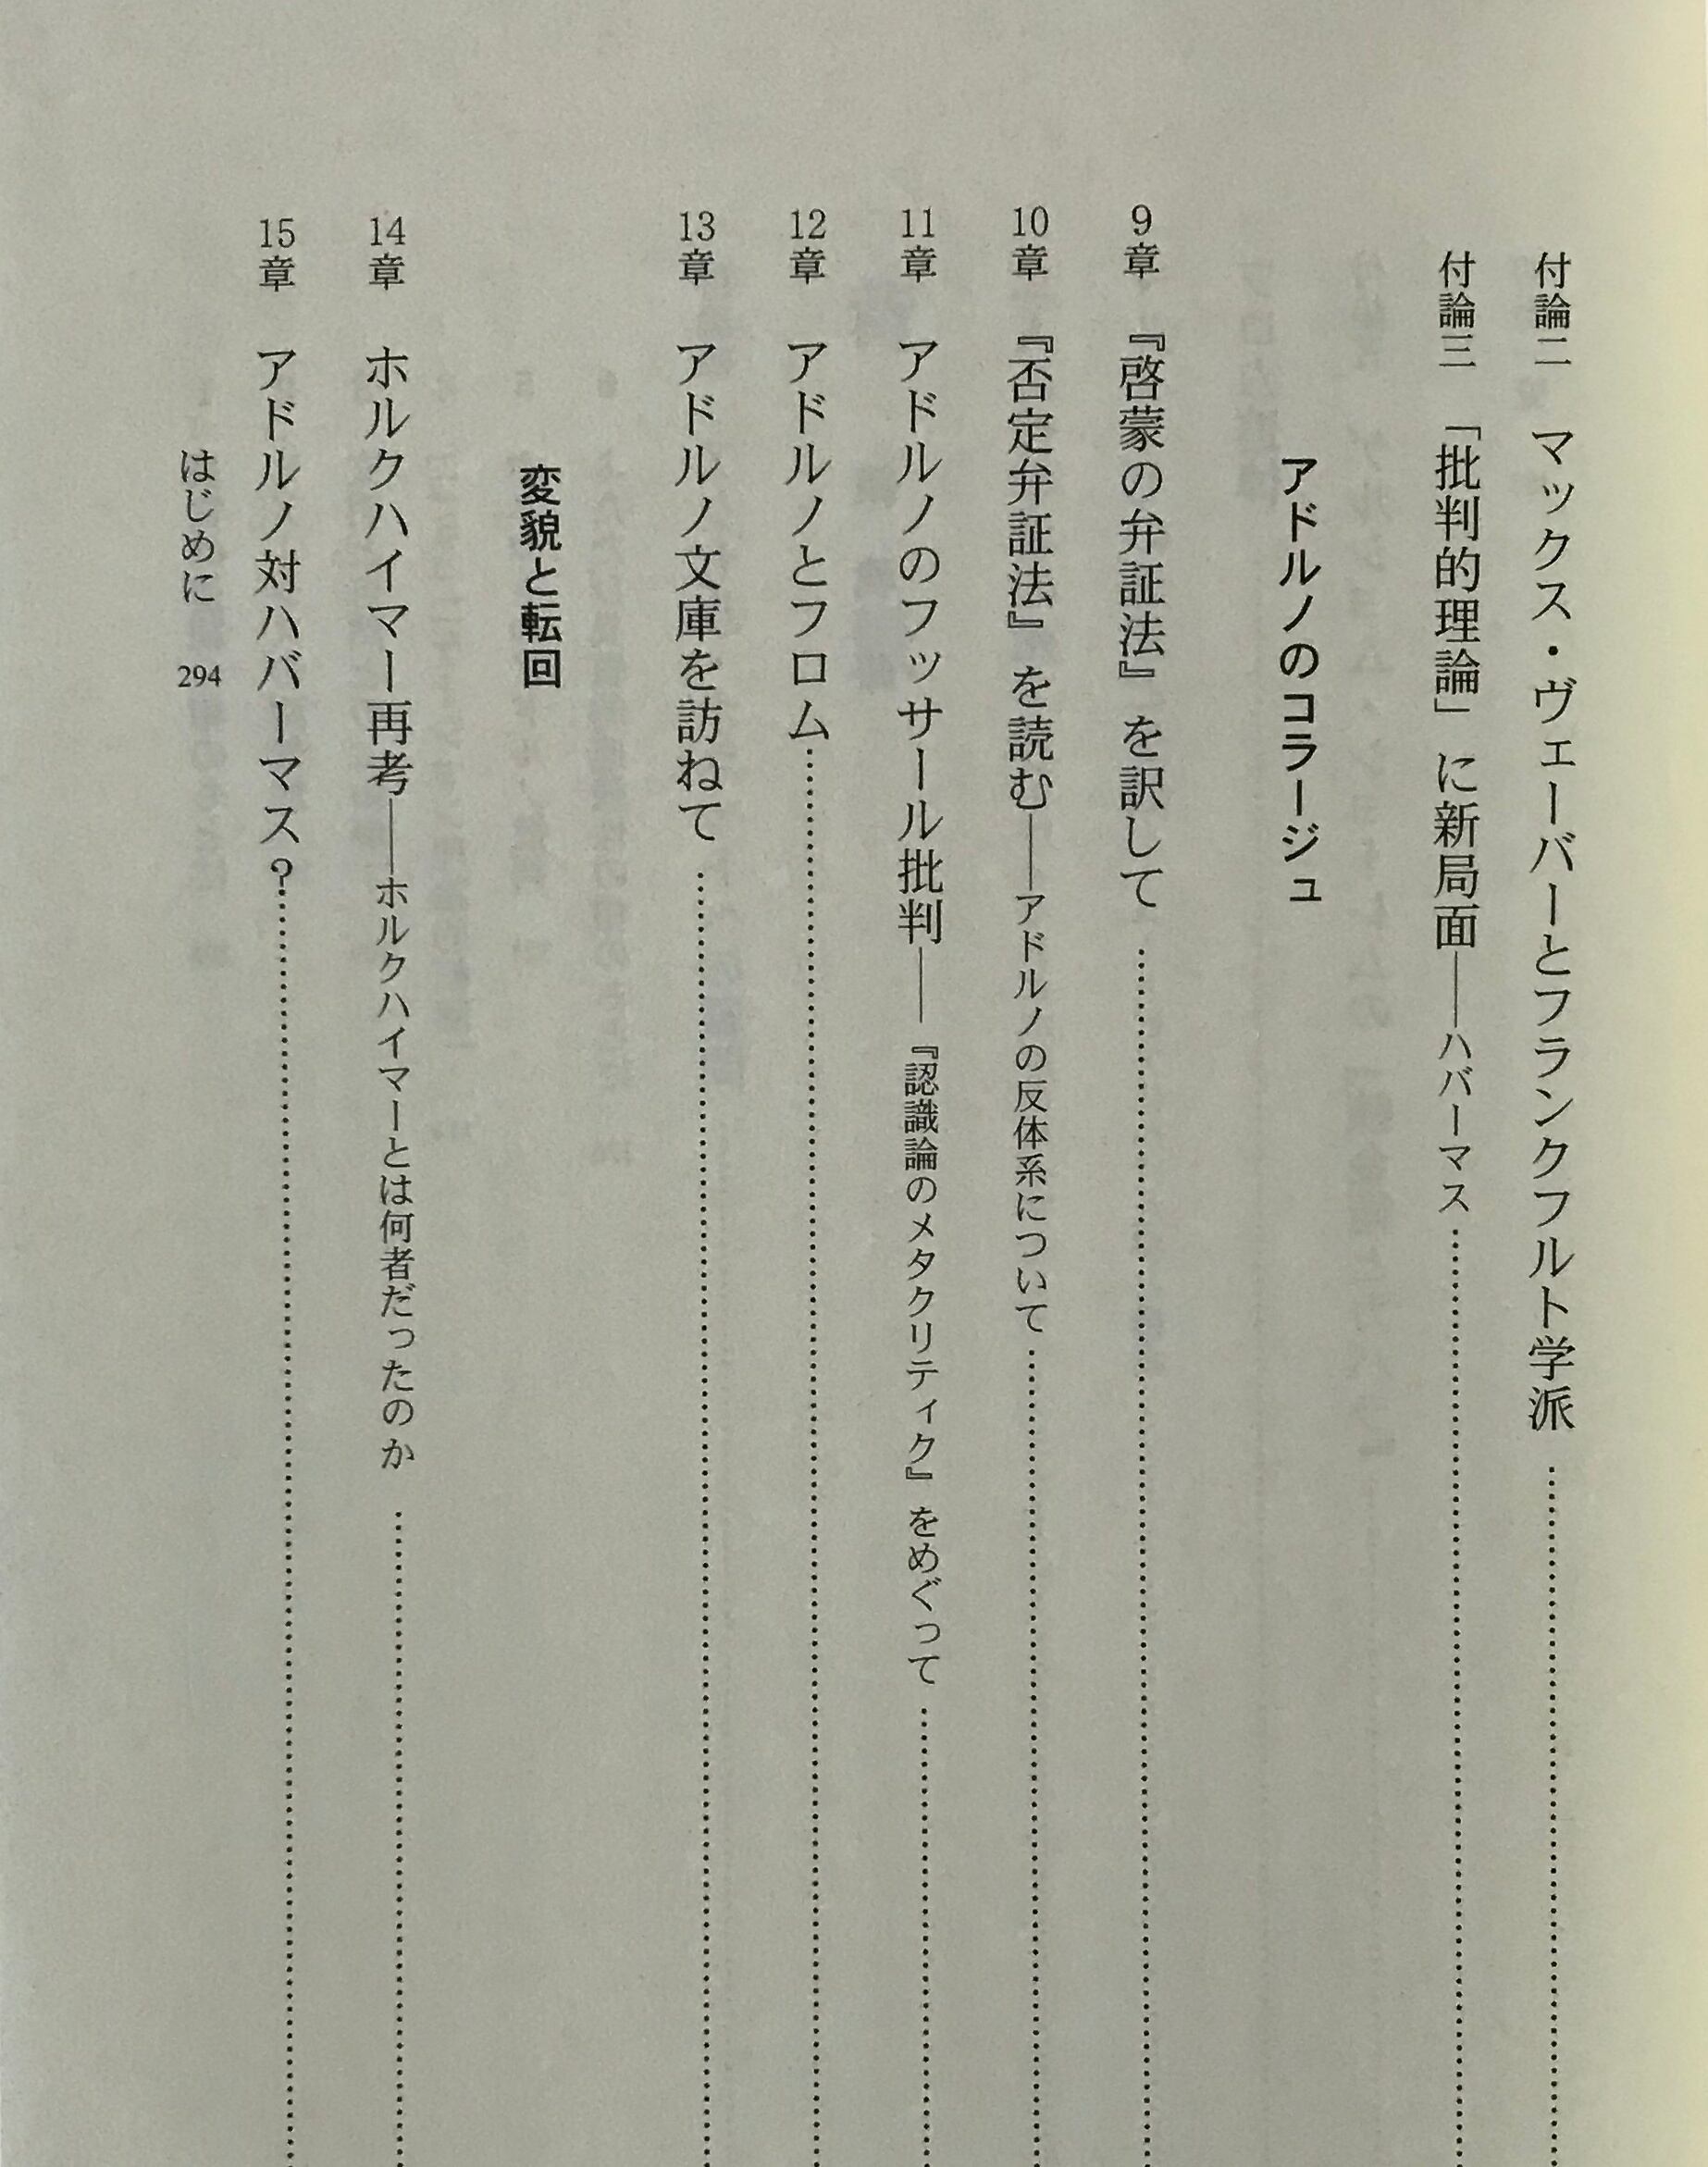 付論二 マックス・ヴェーバーとフランクフルト学派
付論三 「批判的理論」に新局面――ハバーマス
アドルノのコラージュ
9章 『啓蒙の弁証法』を訳して
10章 『否定弁証法』を読む――アドルノの反体系について
11章 アドルノのフッサール批判――『認識論のメタクリティク』をめぐって
12章 アドルノとフロム
13章 アドルノ文庫を訪ねて
変貌と転回
14章 ホルクハイマー再考――ホルクハイマーとは何者だったのか
15章 アドルノ対ハバーマス?
はじめに 294